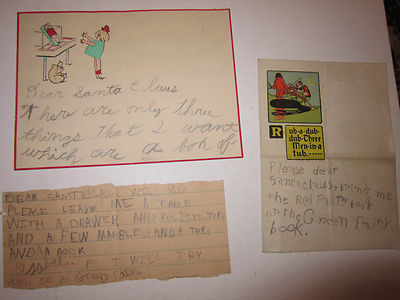 Dear Santa Claus
There are only three
things that I want
which are a book of
DEAR SANTA CLAUS WILL YOU
PLEASE LEAVE ME A TABLE
WITH A DRAWER AND
AND A FEW MARBLES AND A TOP
AND A BOOK
I WILL TRY
AND BE A GOOD GIRL
R ub-a-dub-
dub-Three
Men-in-a
tub.
Please dear
Santa claus, bring me
the Red Fairy book
or the Green Fairy
book.